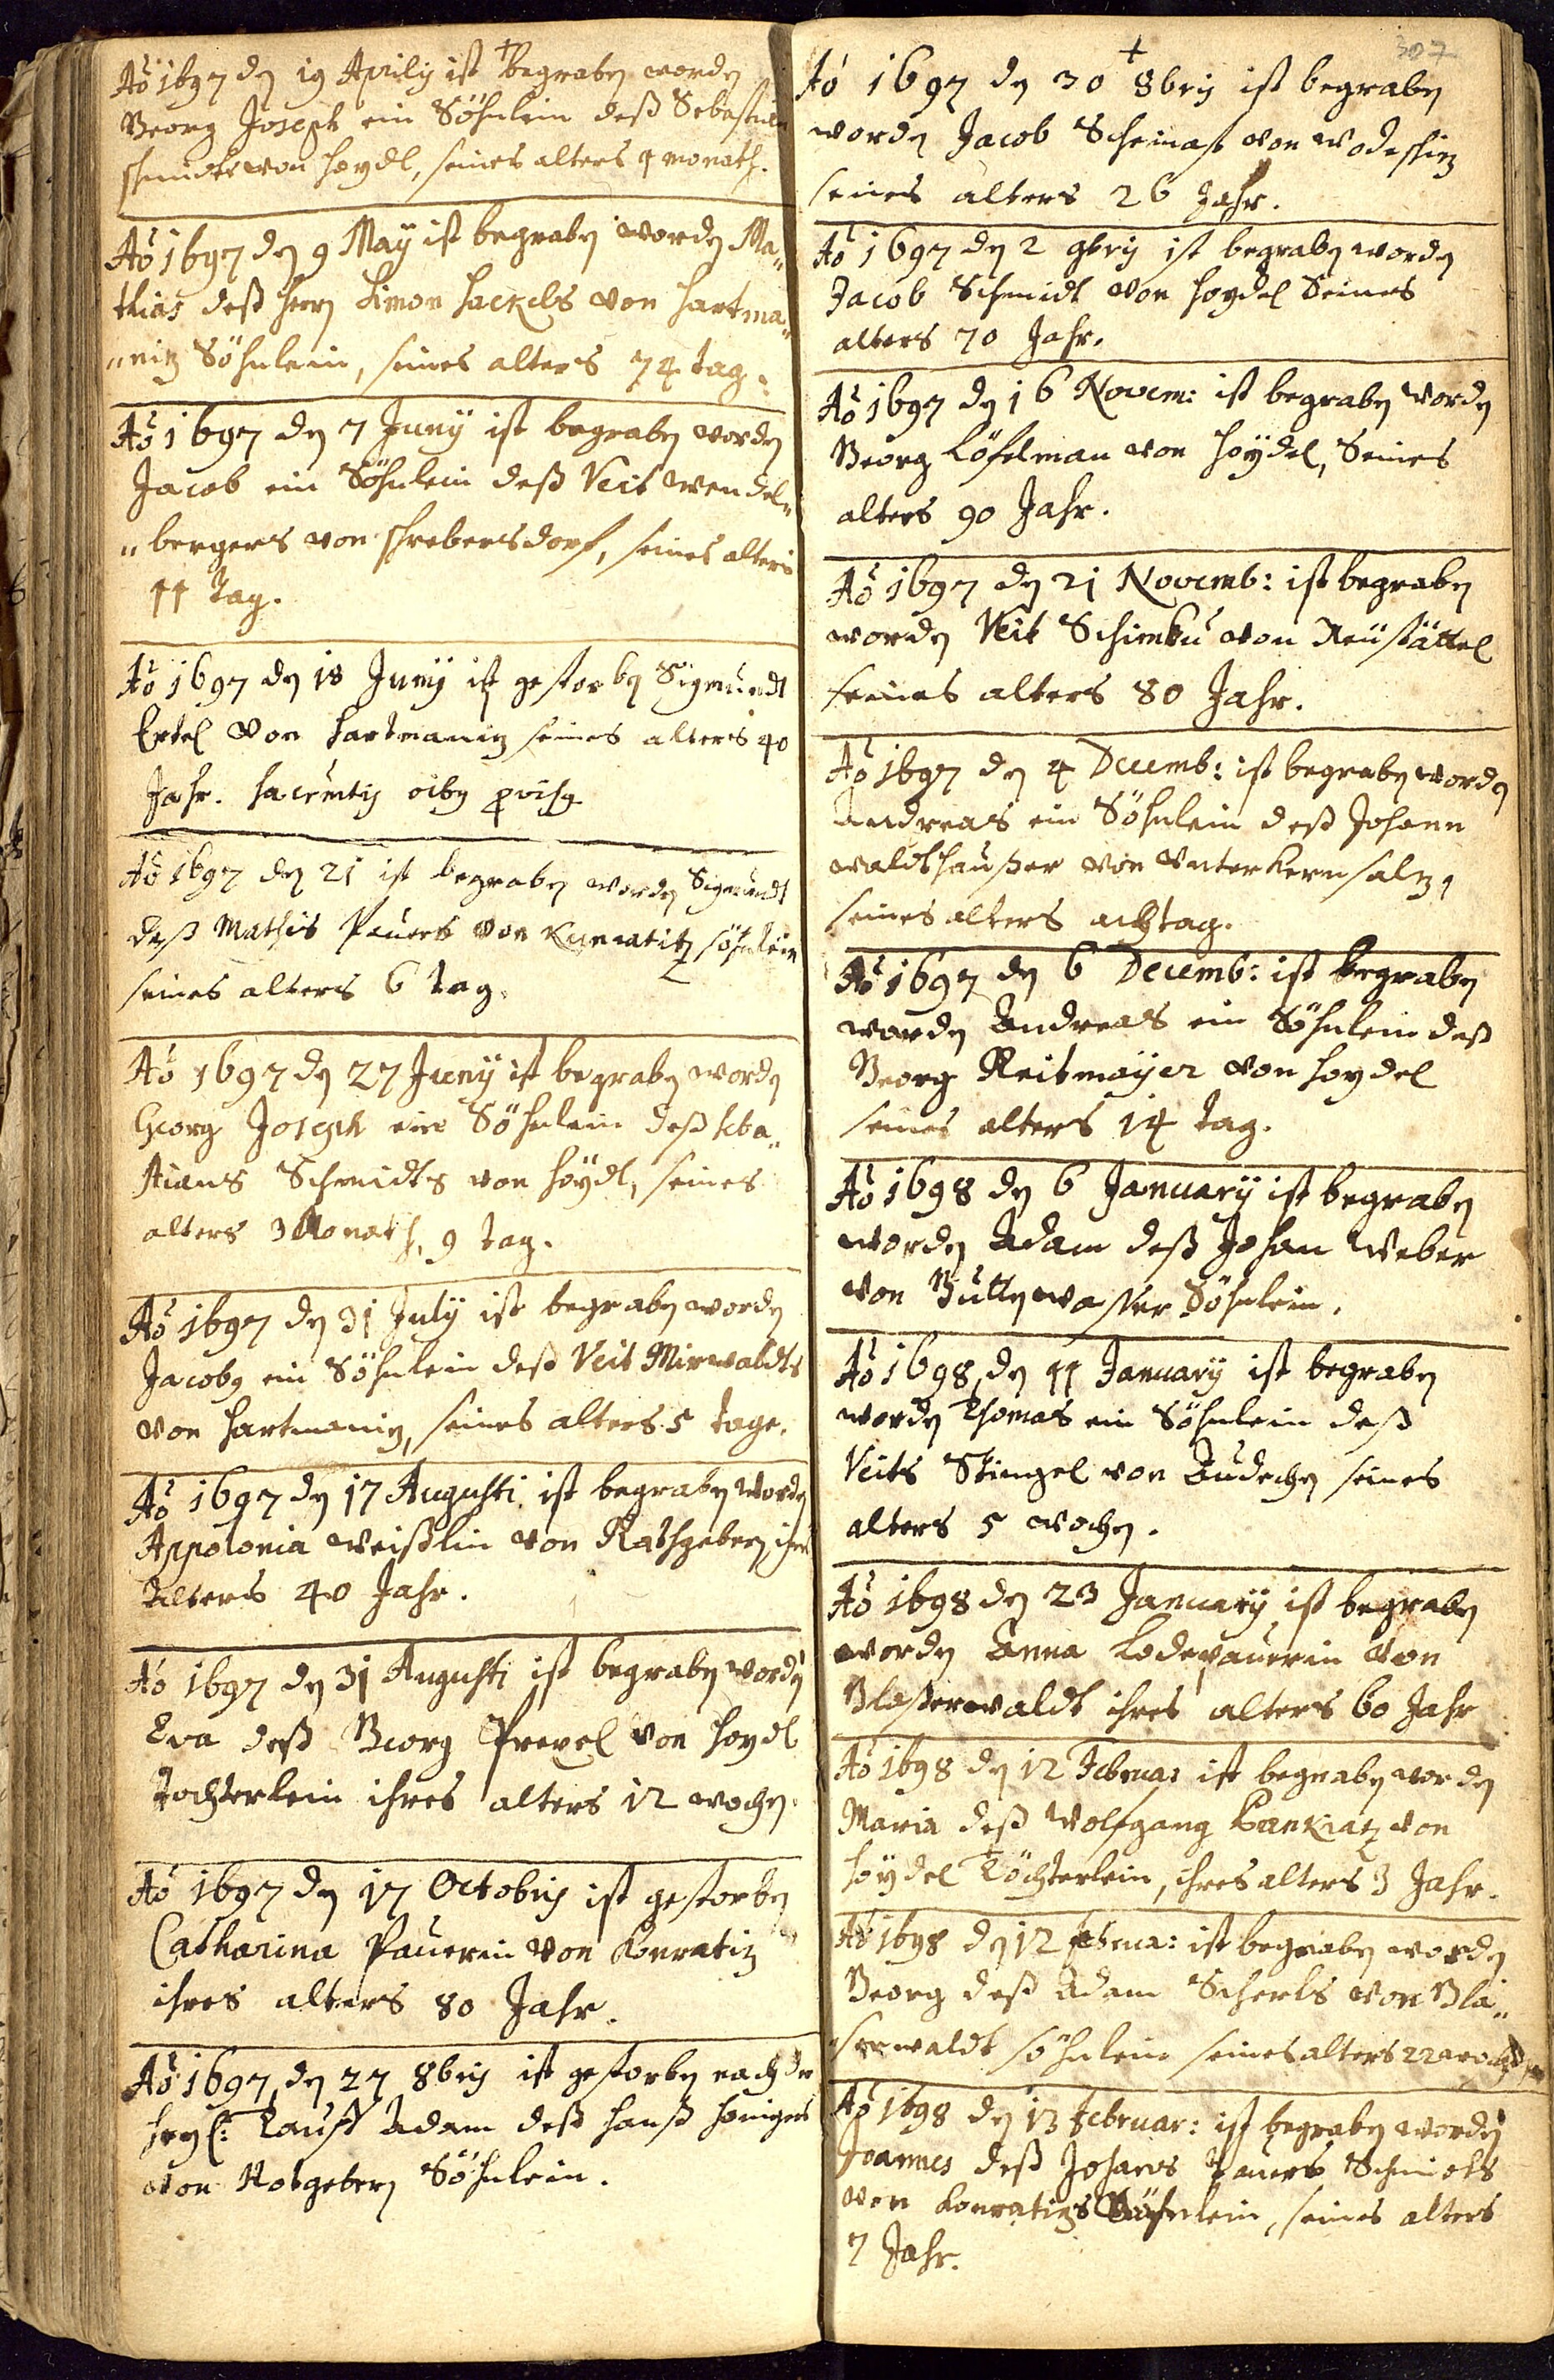 Aõ 1697 den 19 Aprilis ist + begraben worden
Georg Joseph ein Söhnlein deß Sebastian
Schmidts von Heydl, seines alters 4 monath.
Aõ 1697 den 9 May ist begraben worden Ma„
thias deß herrn Simon Hackels von Hartma„
„nitz Söhnlein, seines alters 74 tag.
Aõ 1697 den 7 Juny ist begraben worden
Jacob ein Söhnlein deß Veit Wendel„
„bergers von Schrebersdorf, seines alters
11 tag.
Aõ 1697 den 18 Juny ist gestorben Sigmundt
Ertel von Hartmanitz seines alters 40
Jahr. sacramentis oibus provisus
Aõ 1697 den 21 ist begraben worden Sigmundt
deß Mathes Pauers von Kunratitz söhnlein
seines alters 6 tag.
Aõ 1697 den 27 Juny ist begraben worden
Georg Joseph ein Söhnlein deß Seba„
stians Schmidts von Höydl, seines
alters 3 Monath, 9 tag.
Aõ 1697 den 31 July ist begraben worden
Jacobus ein Söhnlein deß Veit Mirwaldts
von Hartmanitz, seines alters 5 tage.
Aõ 1697 den 17 Augusti ist begraben worden
Appolonia Weißlin von Rathgebern ihres
Alters 40 Jahr.
Aõ 1697 den 31 Augusti ist begraben worden
Eva deß Georg Prexel von Heydl
Tochterlein ihres alters 12 wochen.
Aõ 1697 den 17 Octobris ist gestorben
Catharina Pauerin von Konratitz
ihres alters 80 Jahr.
Aõ 1697 den 27 8bris ist gestorben nach der
heyl: Tauff Adam deß Hanß Honigers
von Rotgebern Söhnlein.
307
Aõ 1697 den 30 + 8bris ist begraben
worden Jacob Scheinast von Wodeschitz
seines alters 26 Jahr.
Aõ 1697 den 2 9bris ist begraben worden
Jacob Schmidt von Heydel Seines
alters 70 Jahr.
Aõ 1697 den 16 Novem: ist begraben worden
Georg Löfelman von Höydel, Seines
alters 90 Jahr.
Aõ 1697 den 21 Novemb: ist begraben
worden Veit Schimku von Neüstättel
seines alters 80 Jahr.
Aõ 1697 den 4 Decemb: ist begraben worden
Andreas ein Söhnlein deß Johann
Waldthaußer von Unterkernsaltz,
seines alters acht tag.
Aõ 1697 den 6 Decemb: ist begraben
worden Andreas ein Söhnlein deß
Georg Reitmayer von Heydel
seines alters 14 tag.
Aõ 1698 den 6 January ist begraben
worden Adam deß Johan Weber
von Guttenwasser Söhnlein.
Aõ 1698, den 11 January ist begraben
worden Thomas ein Söhnlein deß
Veits Stingel von Zudechen seines
alters 5 wochen.
Aõ 1698 den 23 January ist begraben
worden Anna Lodepauerin von
Glaserwaldt ihres alters 60 Jahr
Aõ 1698 den 12 Februar ist begraben worden
Maria deß Wolfgang Pankratz von
Höydel Töchterlein, ihres alters 3 Jahr.
Aõ 1698 den 12 Februa: ist begraben worden
Georg deß Adam Scherls von Gla„
„serwaldt söhnlein seines alters 22 wochen
Aõ 1698 den 13 Februar: ist begraben worden
Joannes deß Johans Pauers Schmidts
von Konratitz Söhnlein, seines alters
7 Jahr.